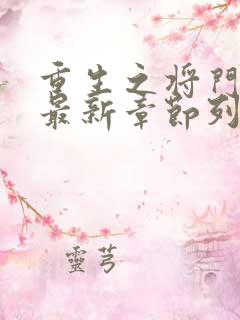 重生之将门
最新章節列
靈芎